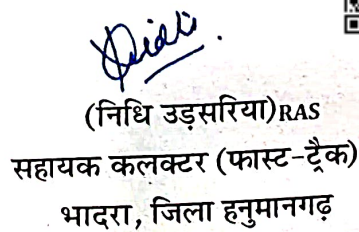 Nidhi
(निधि उड़सरिया)RAS
सहायक कलक्टर (फास्ट-ट्रैक)
भादरा, जिला हनुमानगढ़